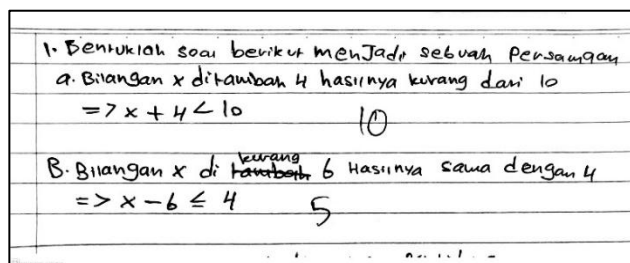 1. Bentuklah soal berikut menjadi sebuah Persamaan
a. Bilangan x ditambah 4 hasilnya kurang dari 10
=> x + 4 < 10 10
B. Bilangan x di kurang 6 Hasilnya sama dengan 4
=> x - 6 ≤ 4 5